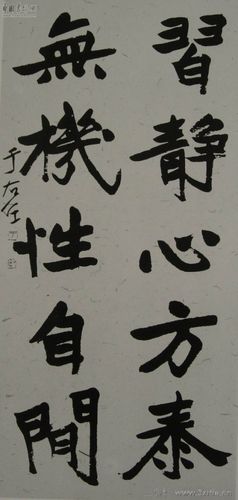 習静心方泰
無機性自閒
于右任